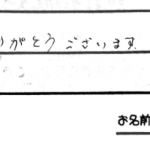 がとうございます。
お名前